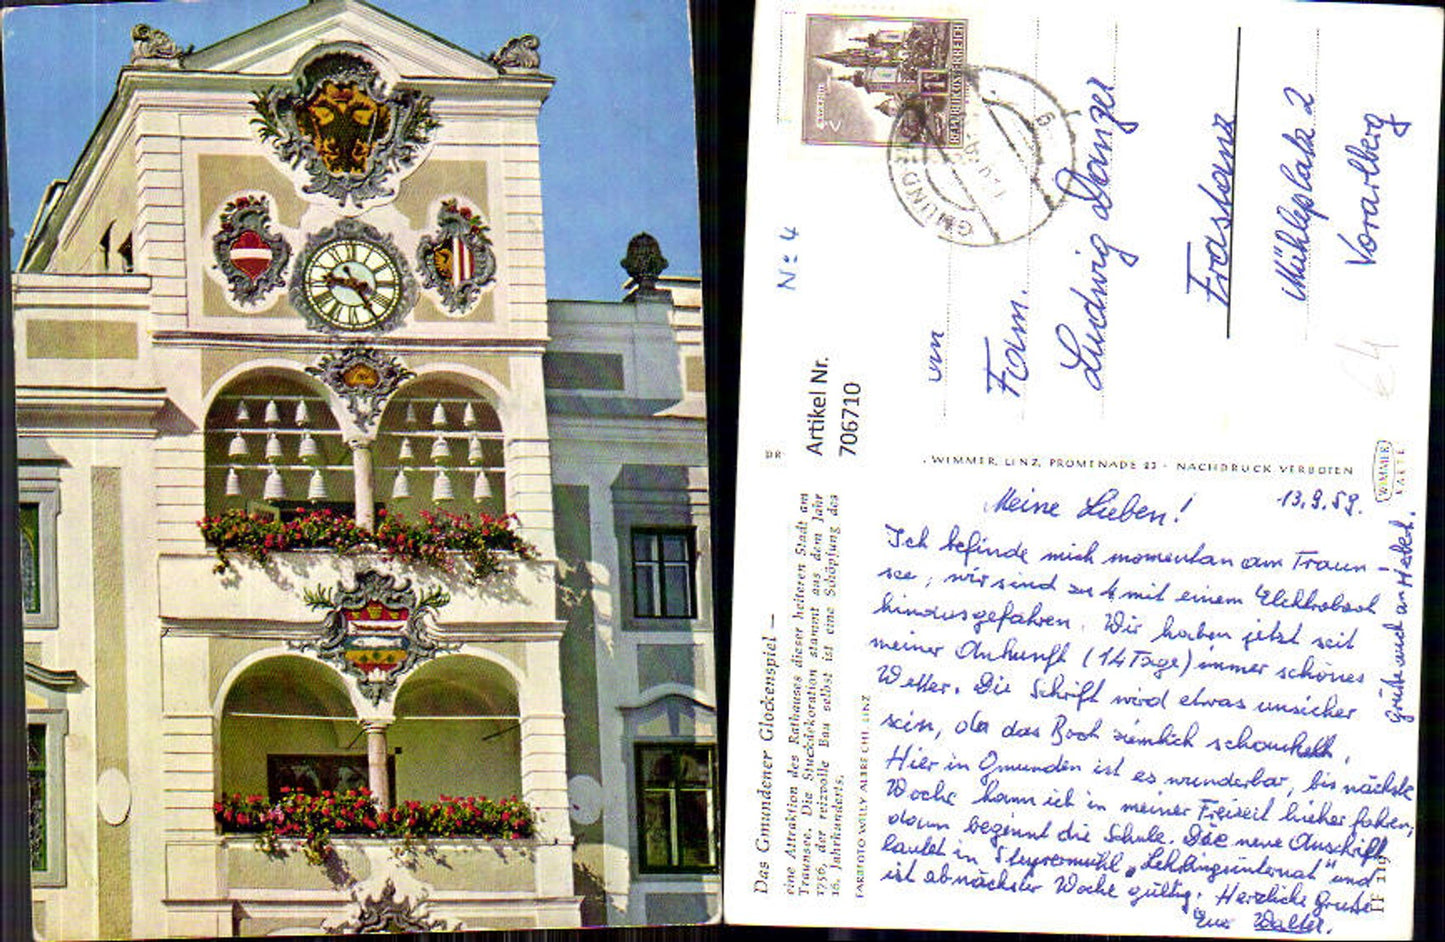 REPUBLIK ÖSTERREICH
GMUNDEN
Nº 4
Artikel Nr.
706710
an
Fam.
Ludwig Danger
Frastanz
Mühleplatz 2
Vorarlberg
WIMMER, LINZ, PROMENADE 23 - NACHDRUCK VERBOTEN
WIMMER
KARTE
Das Gmundener Glockenspiel —
eine Attraktion des Rathauses dieser heiteren Stadt am
Traunsee. Die Stuckdekoration stammt aus dem Jahr
1756, der reizvolle Bau selbst ist eine Schöpfung des
16. Jahrhunderts.
FARBFOTO WILLY ALBRECHT, LINZ
13.9.59.
Meine Lieben!
Ich befinde mich momentan am Traun-
see, wir sind zu 4 mit einem Elektroboot
hinausgefahren. Wir haben jetzt seit
meiner Ankunft (14 Tage) immer schönes
Wetter. Die Schrift wird etwas unsicher
sein, da das Boot ziemlich schaukelt.
Hier in Gmunden ist es wunderbar, bis nächste
Woche kann ich in meiner Freizeit hieher fahren,
dann beginnt die Schule. Die neue Anschrift
lautet in Steyrermühl „Lehrlingsinternat" und
ist ab nächster Woche gültig. Herzliche Grüße
Euer Walter.
Grüße auch an Herbert.
FF 2119